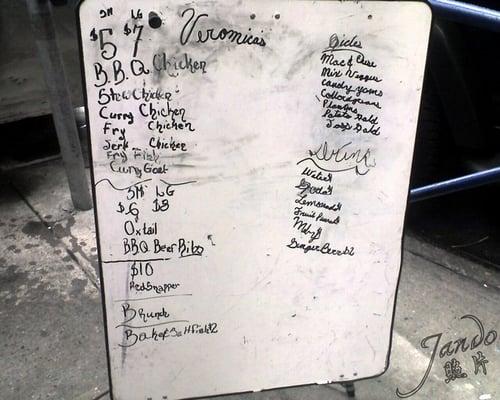 SM LG
$5 $7
Veronica's
B.B.Q Chicken
Stew Chicken
Curry Chicken
Fry Chicken
Jerk Chicken
Fry Fish
Curry Goat
SM LG
$6 $8
Oxtail
BBQ Beef Ribs
$10
Red Snapper
Brunch
Sides
Mac & Chese
Mix Veggies
Candy yams
Plantins
Potato Salad
Toss Salad
Drink
Water
Soda
Lemonade
Fruit Punch
Ginger Beer $2
Jando
照片